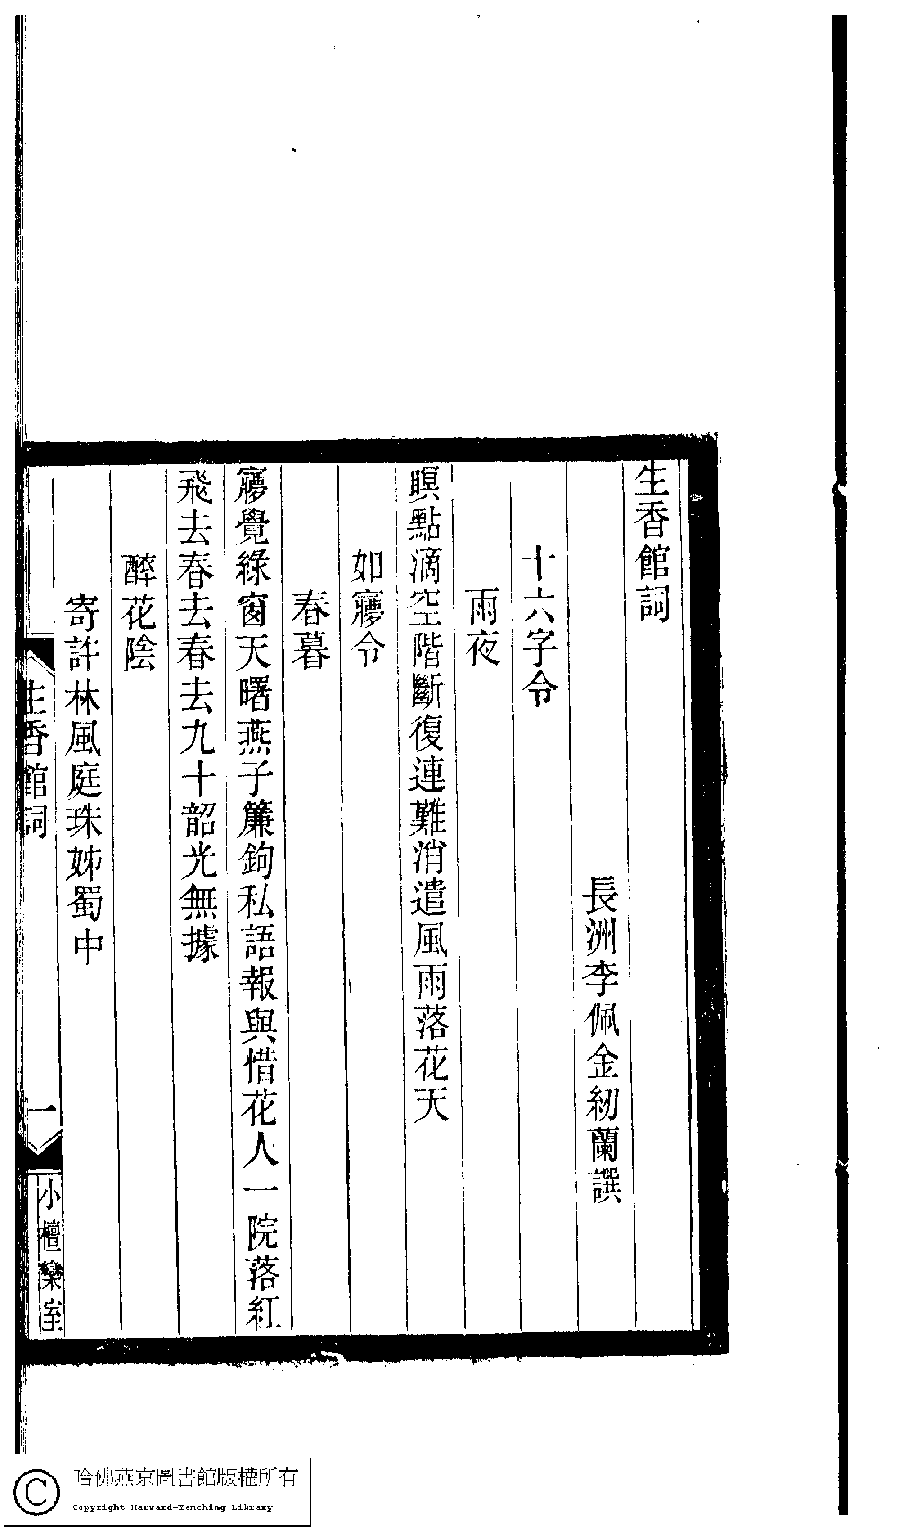 生香館詞
長洲李佩金紉蘭譔
十六字令
雨夜
暝點滴空階斷復連難消遣風雨落花天
如㝱令
春暮
㝱覺綠窗天曙燕子簾鉤私語報與惜花人一院落紅
飛去春去春去九十韶光無據
醉花陰
寄許林風庭珠姊蜀中
生香館詞
一
小檀欒室
哈佛燕京圖書館版權所有
Copyright Harvard-Yenching Library